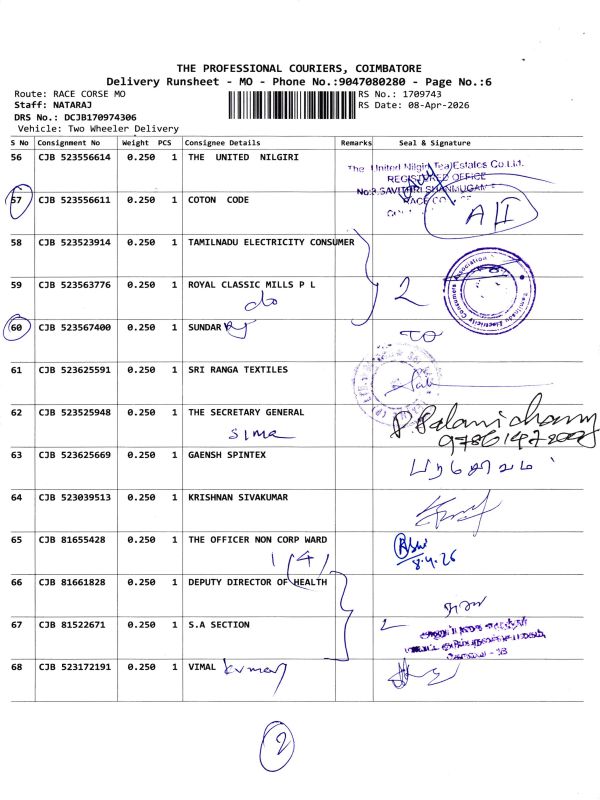 THE PROFESSIONAL COURIERS, COIMBATORE
Delivery Runsheet - MO - Phone No.:9047080280 - Page No.:6
Route: RACE CORSE MO RS No.: 1709743
Staff: NATARAJ RS Date: 08-Apr-2026
DRS No.: DCJB170974306
Vehicle: Two Wheeler Delivery
S No Consignment No Weight PCS Consignee Details Remarks Seal & Signature
56 CJB 523556614 0.250 1 THE UNITED NILGIRI
The United Nilgiri Tea Estates Co.Ltd.
REGISTERED OFFICE
No.3, SAVITHRI SHANMUGAM
RACE CO
57 CJB 523556611 0.250 1 COTON CODE
58 CJB 523523914 0.250 1 TAMILNADU ELECTRICITY CONSUMER
Tamilnadu Electricity Consumers Association
59 CJB 523563776 0.250 1 ROYAL CLASSIC MILLS P L 2
do
60 CJB 523567400 0.250 1 SUNDAR
61 CJB 523625591 0.250 1 SRI RANGA TEXTILES
62 CJB 523525948 0.250 1 THE SECRETARY GENERAL
sima
P Palanichamy
63 CJB 523625669 0.250 1 GAENSH SPINTEX
64 CJB 523039513 0.250 1 KRISHNAN SIVAKUMAR
65 CJB 81655428 0.250 1 THE OFFICER NON CORP WARD
1(4)
8.4.26
66 CJB 81661828 0.250 1 DEPUTY DIRECTOR OF HEALTH
67 CJB 81522671 0.250 1 S.A SECTION 2
68 CJB 523172191 0.250 1 VIMAL kumar
2